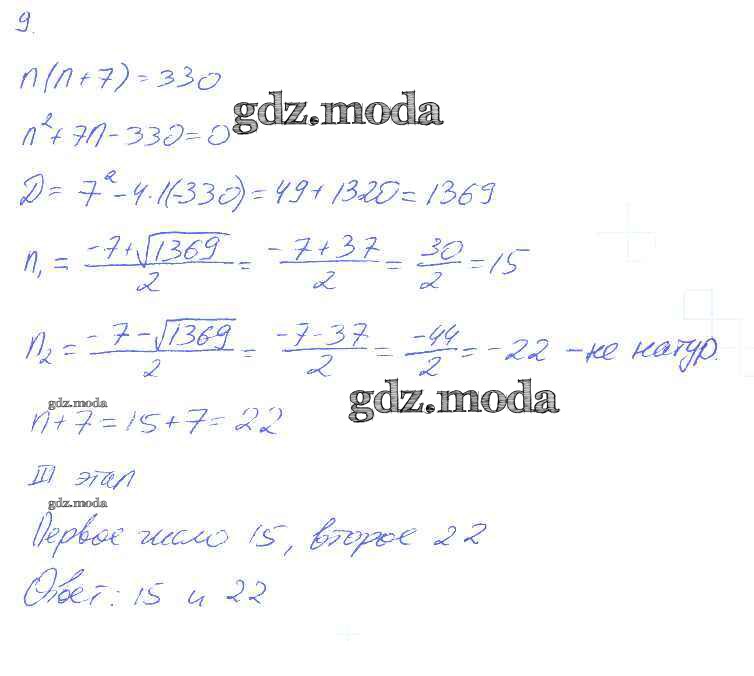 9.
n(n+7)=330
gdz.moda
n²+7n-330=0
D= 7²-4·1(-330)=49+1320=1369
n₁ = (-7+√1369)/2 = (-7+37)/2 = 30/2 = 15
n₂ = (-7-√1369)/2 = (-7-37)/2 = -44/2 = -22 - не натур.
gdz.moda
gdz.moda
n+7=15+7=22
III этап
gdz.moda
Первое число 15, второе 22
Ответ: 15 и 22